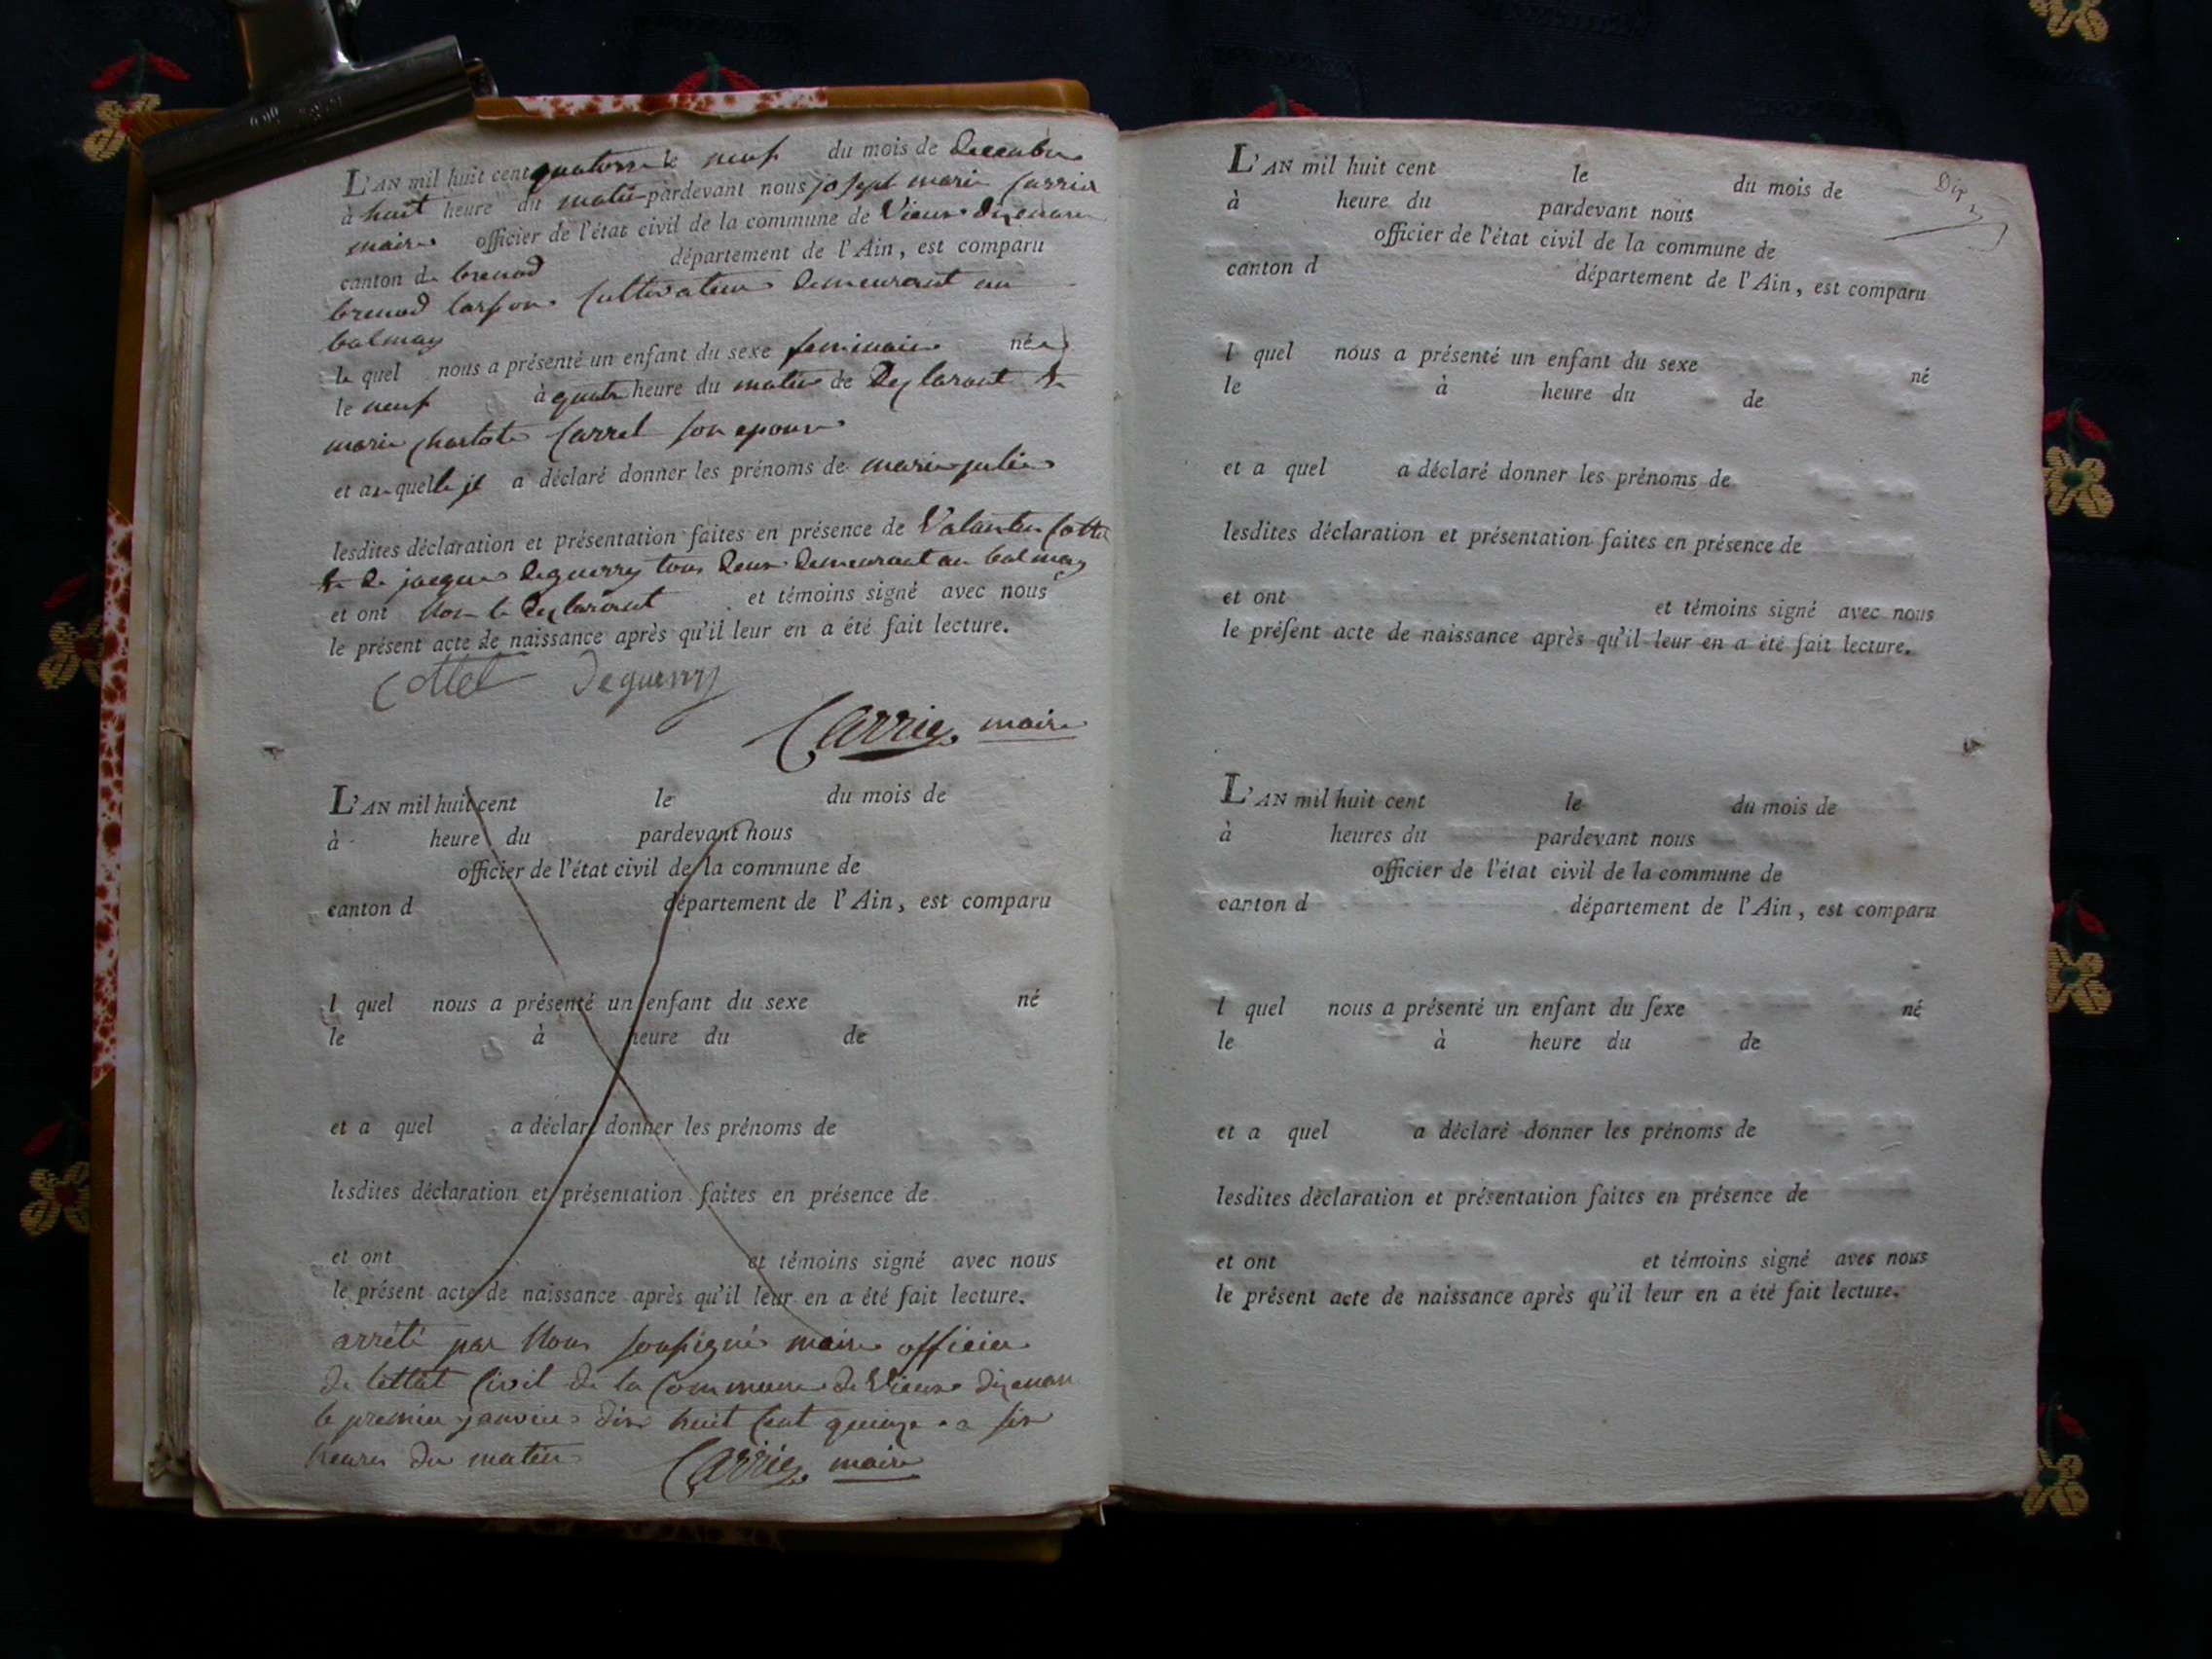 L'AN mil huit cent quatorze le neuf du mois de decembre
à huit heure du matin pardevant nous joseph marie Carrier
maire officier de l'état civil de la commune de Vieux dizenave
canton de brenod département de l'Ain, est comparu
brenod cultivateur demeurant au
balmay
le quel nous a présenté un enfant du sexe feminain née
le neuf à quatre heure du matin de deglarant &
marie charlote Carrel son epouse
et a la quelle il a déclaré donner les prénoms de marie julie
lesdites déclaration et présentation faites en présence de Valantin Cottet
& de jacque deguerry tous deux demeurant au balmay
et ont non le deglarant et témoins signé avec nous
le présent acte de naissance après qu'il leur en a été fait lecture.
Cottet deguerry
Carrier maire
L'AN mil huit cent le du mois de
à heure du pardevant nous
officier de l'état civil de la commune de
canton d département de l'Ain, est comparu
l quel nous a présenté un enfant du sexe né
le à heure du de
et a quel a déclaré donner les prénoms de
lesdites déclaration et présentation faites en présence de
et ont et témoins signé avec nous
le présent acte de naissance après qu'il leur en a été fait lecture.
arrêté par Nous soussigné maire officier
de lettat Civil de la Commune de Vieux
le premier janvier dix huit cent quinze a six
heures du matin Carrier maire
L'AN mil huit cent le du mois de
à heure du pardevant nous
officier de l'état civil de la commune de
canton d département de l'Ain, est comparu
l quel nous a présenté un enfant du sexe né
le à heure du de
et a quel a déclaré donner les prénoms de
lesdites déclaration et présentation faites en présence de
et ont et témoins signé avec nous
le préſent acte de naissance après qu'il leur en a été fait lecture.
L'AN mil huit cent le du mois de
à heures du pardevant nous
officier de l'état civil de la commune de
canton d département de l'Ain, est comparu
l quel nous a présenté un enfant du ſexe né
le à heure du de
et a quel a déclaré donner les prénoms de
lesdites déclaration et présentation faites en présence de
et ont et témoins signé avec nous
le présent acte de naissance après qu'il leur en a été fait lecture.